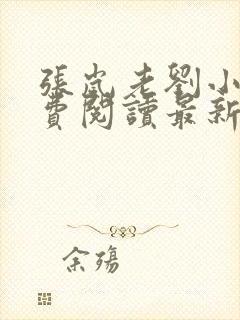 張嵐老劉小
費閱讀最新
余殤